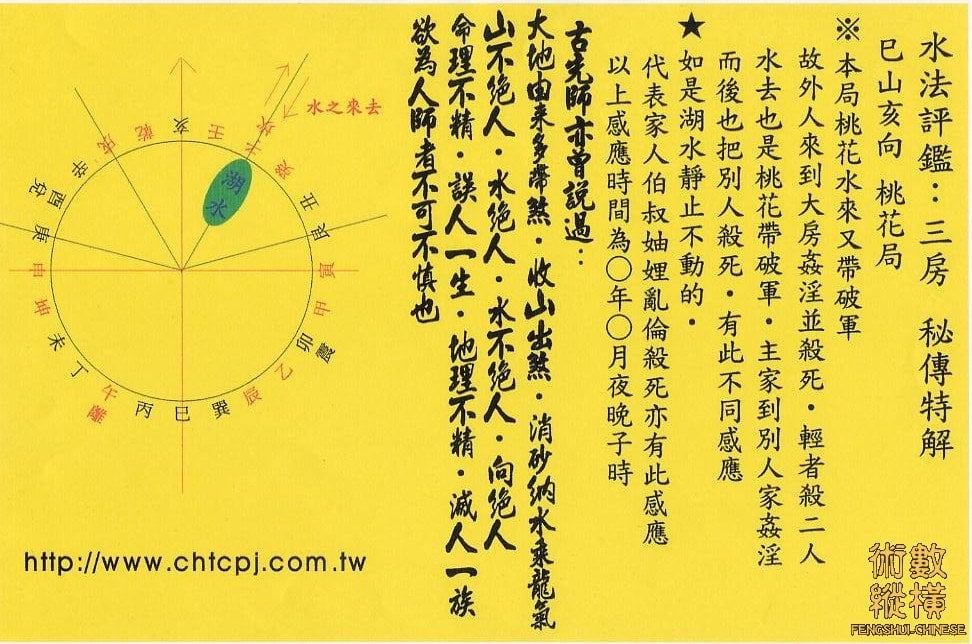 水法評鑑：三房　秘傳特解
巳山亥向　桃花局
※本局桃花水來又帶破軍
故外人來到大房姦淫並殺死．輕者殺二人
水去也是桃花帶破軍．主家到別人家姦淫
而後也把別人殺死．有此不同感應
★如是湖水靜止不動的．
代表家人伯叔妯娌亂倫殺死亦有此感應
以上感應時間為○年○月夜晚子時
古先師亦曾說過：
大地由來多帶煞．收山出煞．消砂納水乘龍氣
山不絕人．水絕人．水不絕人．向絕人
命理不精．誤人一生．地理不精．滅人一族
欲為人師者不可不慎也
水之來去
湖水
亥
壬
子坎
癸
丑
艮
寅
甲
卯震
乙
辰
巽
巳
丙
午離
丁
未
坤
申
庚
酉兌
辛
戌
乾
http://www.chtcpj.com.tw
術數縱橫
FENGSHUI-CHINESE